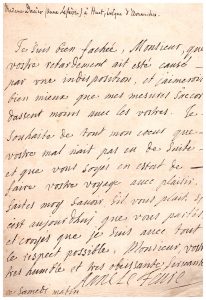 Madame Dacier (Anne Lefèvre) à Huet, évêque d'Avranches.
Je suis bien fachée, Monsieur, que
vostre retardement ait esté causé
par une indisposition, et j'aimerois
bien mieux que mes mesures s'accor
dassent moins avec les vostres. Je
souhaite de tout mon coeur que
vostre mal n'ait pas eu de suite
et que vous soyes en estat de
faire vostre voyage avec plaisir.
faites moy sçavoir s'il vous plaist, si
c'est aujourdhuy que vous partes
et croyes que je suis avec tout
le respect possible, Monsieur, vostre
tres humble et tres obeissante servante
Anne Le Fevre
ce Samedi matin